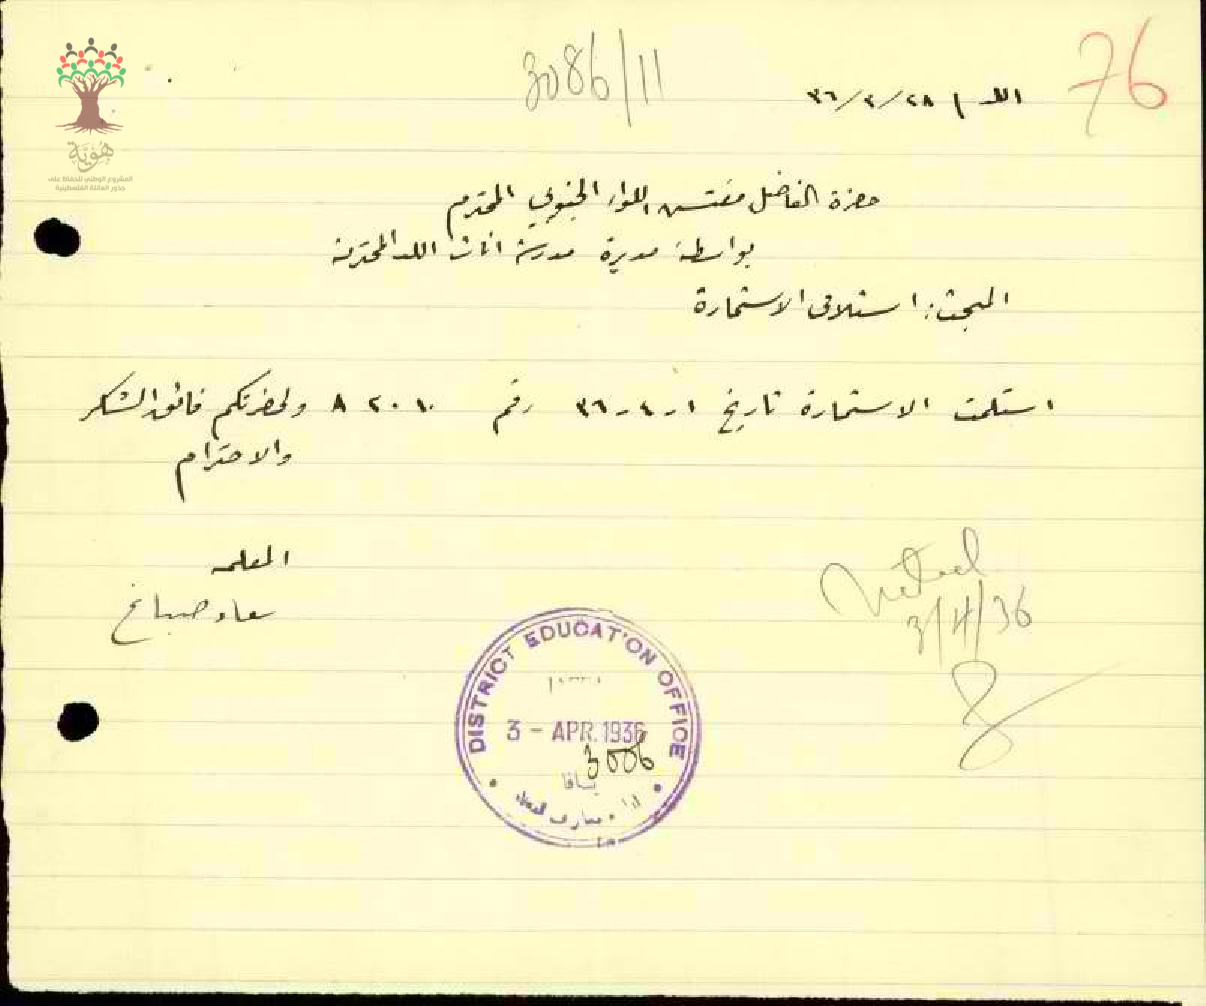 76
3086/11
اللد في ٢٨/٣/٣٦
هُوِيَّة
المشروع الوطني للحفاظ على
جذور العائلة الفلسطينية
حضرة الفاضل مفتش اللواء الجنوبي المحترم
بواسطة مديرة مدرسة اناث اللد المحترمة
المبحث: استلام الاستمارة
استلمت الاستمارة تاريخ ١-٤-٣٦ رقم ٨٢٠١٠ ولحضرتكم فائق الشكر
والاحترام
المعلمه
سعاد صباغ
Noted
3/4/36
DISTRICT EDUCATION OFFICE
3 - APR. 1936
3006
يافا